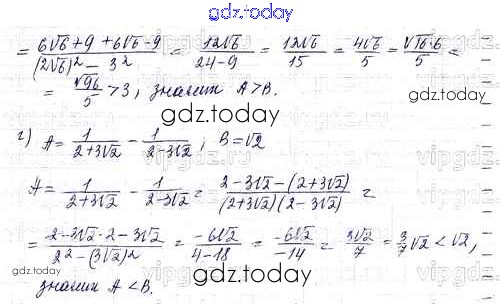 gdz.today
= (6√6+9+6√6-9)/((2√6)² - 3²) = 12√6/(24-9) = 12√6/15 = 4√6/5 = √16·6/5 =
= √96/5 > 3, значит A > B.
gdz.today
г) A = 1/(2+3√2) - 1/(2-3√2); B = √2
A = 1/(2+3√2) - 1/(2-3√2) = (2-3√2-(2+3√2))/((2+3√2)(2-3√2)) =
= (2-3√2-2-3√2)/(2²-(3√2)²) = -6√2/(4-18) = -6√2/-14 = 3√2/7 = 3/7 √2 < √2,
gdz.today
значит A < B.
gdz.today